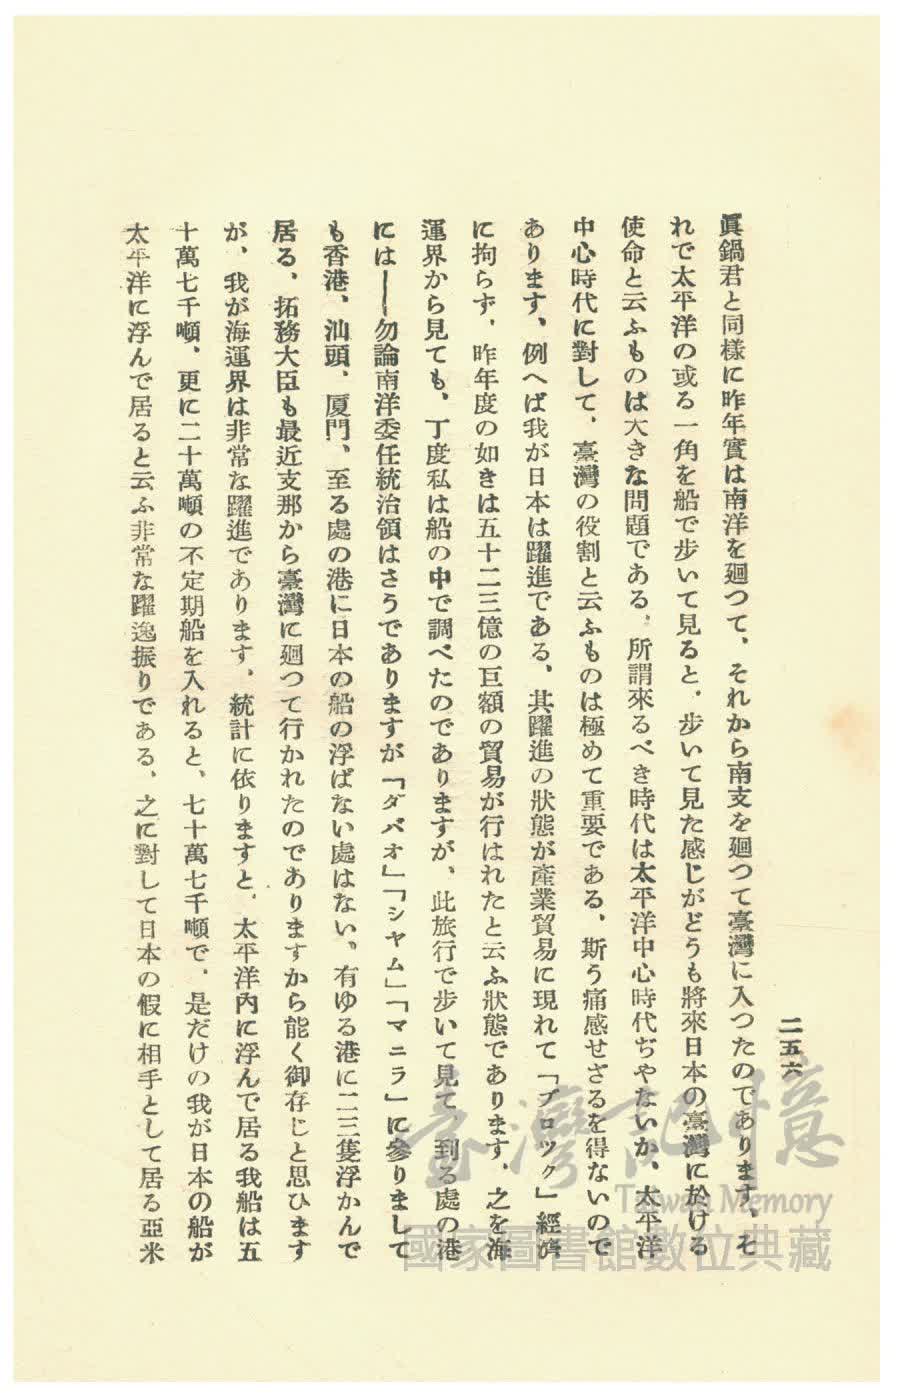 二五六
眞鍋君と同樣に昨年實は南洋を廻つて、それから南支を廻つて臺灣に入つたのであります、そ
れで太平洋の或る一角を船で步いて見ると、步いて見た感じがどうも將來日本の臺灣に於ける
使命と云ふものは大きな問題である、所謂來るべき時代は太平洋中心時代ぢやないか、太平洋
中心時代に對して、臺灣の役割と云ふものは極めて重要である、斯う痛感せざるを得ないので
あります、例へば我が日本は躍進である、其躍進の狀態が產業貿易に現れて「ブロツク」經濟
に拘らず、昨年度の如きは五十二三億の巨額の貿易が行はれたと云ふ狀態であります、之を海
運界から見ても、丁度私は船の中で調べたのでありますが、此旅行で步いて見て、到る處の港
には――勿論南洋委任統治領はさうでありますが「ダバオ」「シヤム」「マニラ」に參りまして
も香港、汕頭、厦門、至る處の港に日本の船の浮ばない處はない、有ゆる港に二三隻浮かんで
居る、拓務大臣も最近支那から臺灣に廻つて行かれたのでありますから能く御存じと思ひます
が、我が海運界は非常な躍進であります、統計に依りますと、太平洋內に浮んで居る我船は五
十萬七千噸、更に二十萬噸の不定期船を入れると、七十萬七千噸で、是だけの我が日本の船が
太平洋に浮んで居ると云ふ非常な躍逸振りである、之に對して日本の假に相手として居る亞米
臺灣記憶
Taiwan Memory
國家圖書館數位典藏